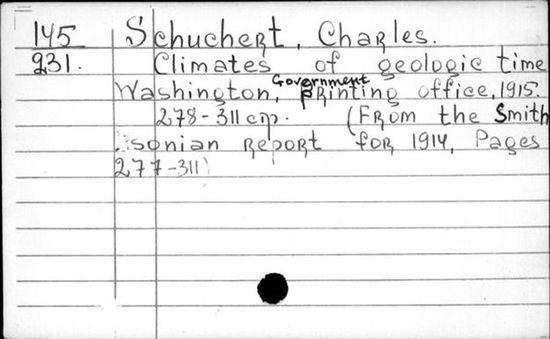 145 Schuchert, Charles.
231. Climates of geologic time
Washington, Government Printing office, 1915.
278-311 cm. (From the Smith
sonian Report for 1914, Pages
277-311)